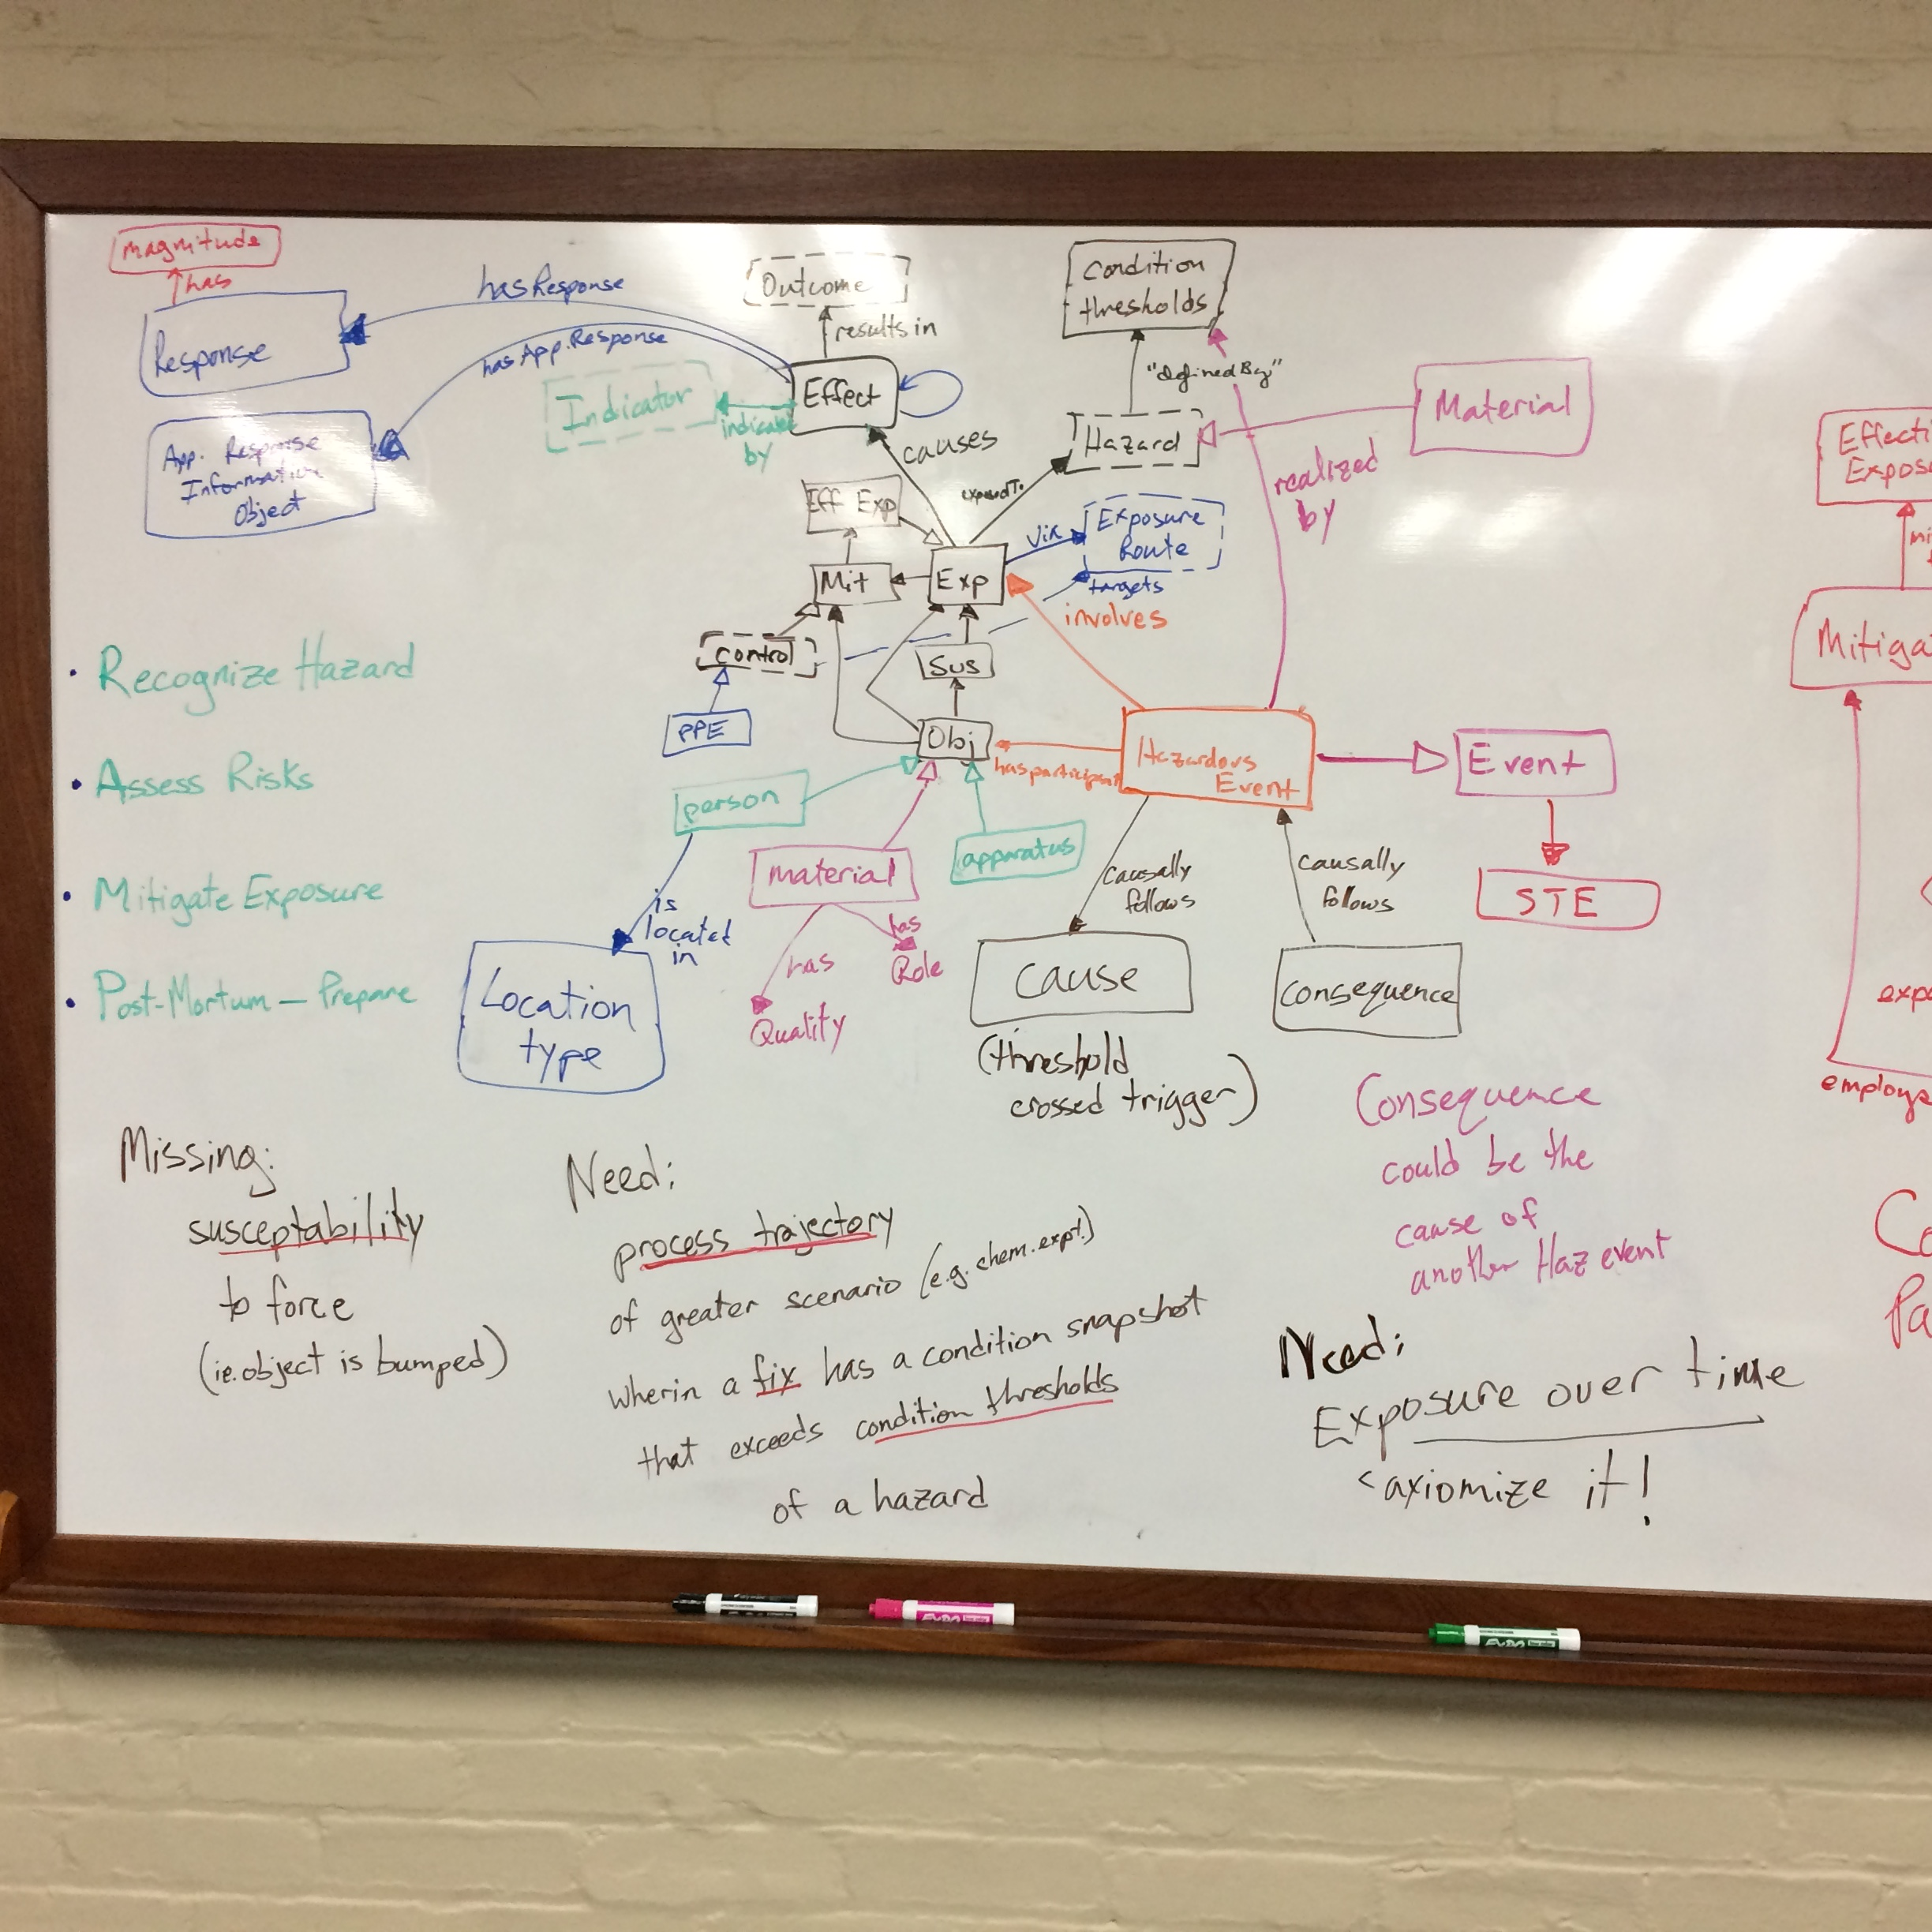 magnitude
has
Response
hasResponse
hasApp.Response
App. Response
Information
Object
Outcome
results in
Effect
Indicator
indicated
by
causes
Condition
thresholds
"definedBy"
Hazard
Material
realized
by
exposedTo
Eff Exp
Mit
Exp
via
Exposure
Route
targets
involves
control
PPE
Sus
Obj
hasparticipant
Hazardous
Event
Event
STE
person
material
apparatus
is
located
in
Location
type
has
Quality
has
Role
causally
follows
Cause
(threshold
crossed trigger)
causally
follows
Consequence
• Recognize Hazard
• Assess Risks
• Mitigate Exposure
• Post-Mortum — Prepare
Missing:
susceptability
to force
(ie. object is bumped)
Need:
process trajectory
of greater scenario (e.g. chem. expt.)
wherin a fix has a condition snapshot
that exceeds condition thresholds
of a hazard
Consequence
could be the
cause of
another Haz event
Need:
Exposure over time
axiomize it!
Effecti
Expos
Mitiga
expo
employs
Co
Pa
EXPO
EXPO